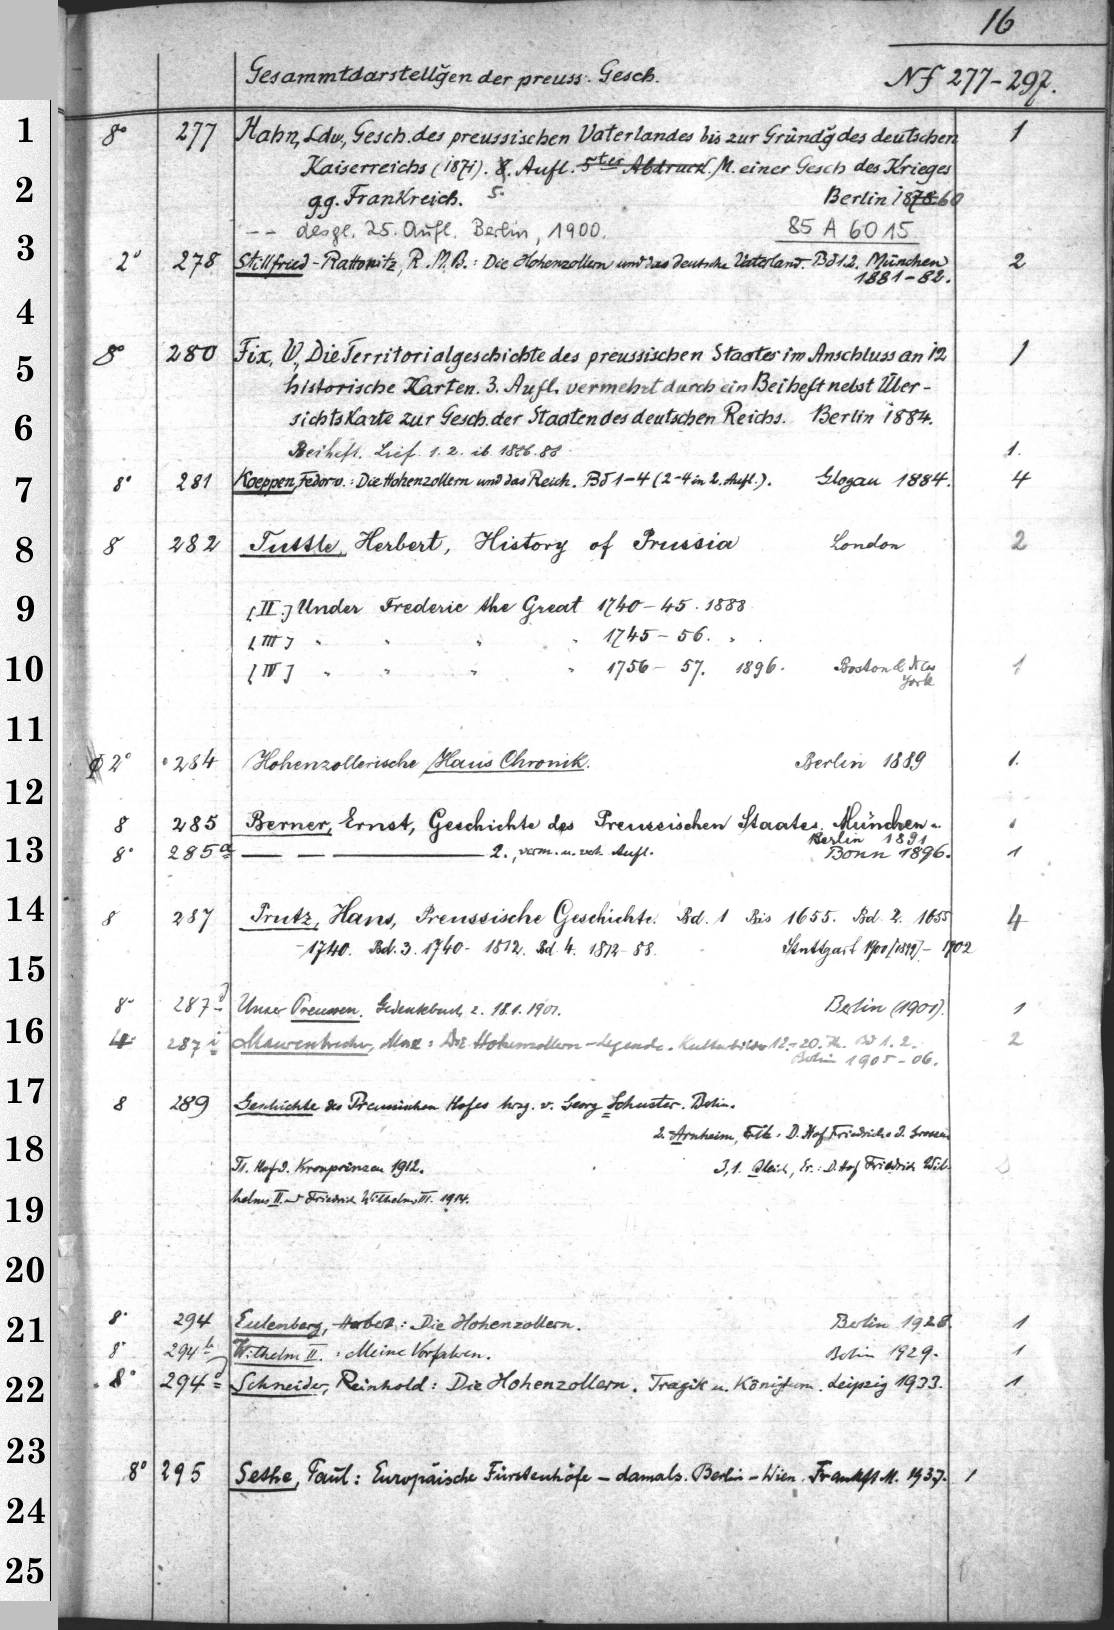 16
Gesammtdarstellg̃en der preuss. Gesch. Nf 277-297.
1
8° 277 Hahn, Ldw., Gesch. des preussischen Vaterlandes bis zur Gründg̃ des deutschen 1
2
Kaiserreichs (1871). 8. Aufl. 5ter Abdruck. M. einer Gesch des Krieges
gg. Frankreich. 5. Berlin 187860
3
-- desgl. 25. Aufl. Berlin, 1900. 85 A 6015
2° 278 Stillfried-Rattonitz, R. M. B.: Die Hohenzollern und das deutsche Vaterland. Bd 1.2. München 2
1881-82.
4
5
8° 280 Fix, W., Die Territorialgeschichte des preussischen Staates im Anschluss an 12 1
historische Karten. 3. Aufl. vermehrt durch ein Beiheft nebst Über-
6
sichtskarte zur Gesch. der Staaten des deutschen Reichs. Berlin 1884.
Beiheft. Lief. 1. 2. ib 1886.88 1.
7
8° 281 Koeppen, Fedor v.: Die Hohenzollern und das Reich. Bd 1-4 (2-4 in 2. Aufl.). Glogau 1884. 4
8
8 282 Tuttle, Herbert, History of Prussia London 2
9
[II.] Under Frederic the Great 1740-45. 1888
[III] " " " " 1745-56. " .
10
[IV] " " " " 1756-57. 1896. Boston & New York 1
11
2° 284 Hohenzollerische Haus Chronik. Berlin 1889 1.
12
8 285 Berner, Ernst, Geschichte des Preussischen Staates. München u. 1
Berlin 1891
13
8° 285a — — — 2., verm. u. vb. Aufl. Bonn 1896. 1
14
8 287 Prutz, Hans, Preussische Geschichte. Bd. 1 Bis 1655. Bd. 2. 1655 4
15
-1740. Bd. 3. 1740-1812. Bd. 4. 1812-88. Stuttgart 1900/(1899)-1902
8° 287 Unser Preussen. Gedenkbuch z. 18.1.1901. Berlin (1901). 1
16
4° 287i Maurenbrecher, Max: Die Hohenzollern-Legende. Kulturbilder 12.-20. Jh. Bd 1.2. 2
Berlin 1905-06.
17
8 289 Geschichte des Preussischen Hofes hrsg. v. Georg Schuster. Berlin.
18
2. Arnheim, Fritz: D. Hof Friedrichs d. Grossen
Tl. Hof d. Kronprinzen 1912. 3,1. Bleich, Er.: D. Hof Friedrich Wil-
19
helms II. und Friedrich Wilhelms III. 1914.
20
21
8° 294 Eulenberg, Herbert: Die Hohenzollern. Berlin 1928. 1
8° 294b Wilhelm II.: Meine Vorfahren. Berlin 1929. 1
22
8° 294d Schneider, Reinhold: Die Hohenzollern. Tragik u. Königtum. Leipzig 1933. 1
23
8° 295 Sethe, Paul: Europäische Fürstenhöfe – damals. Berlin – Wien. Frankft M. 1937. 1
24
25